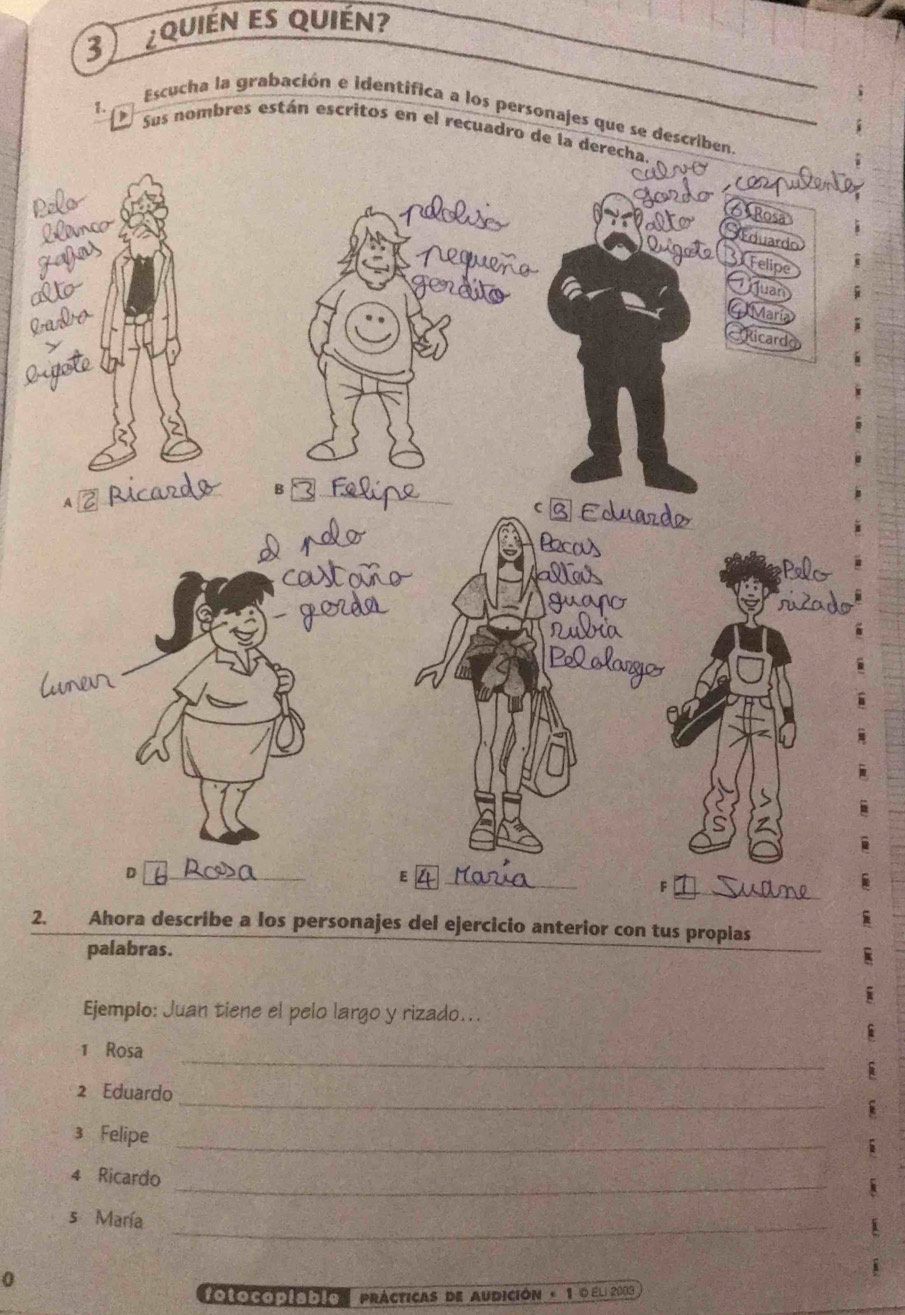 3 ¿QUIÉN ES QUIÉN?
1. Escucha la grabación e identifica a los personajes que se describen.
Sus nombres están escritos en el recuadro de la derecha.
Pelo
blanco
gafas
alto
barba
y
bigote
peloliso
pequeño
gordito
calvo
gordo, corpulento
alto
bigote
6 Rosa
5 Eduardo
3 Felipe
1 Juan
4 María
2 Ricardo
A 2 Ricardo
B 3 Felipe
C 5 Eduardo
el pelo
castaño
- gorda
Lunar
Pecas
altas
guapo
rubia
Pelolargo
Pelo
rizado
D 6 Rosa
E 4 María
F 1 Juane
2. Ahora describe a los personajes del ejercicio anterior con tus propias
palabras.
Ejemplo: Juan tiene el pelo largo y rizado...
1 Rosa
2 Eduardo
3 Felipe
4 Ricardo
5 María
0
fotocopiable PRÁCTICAS DE AUDICIÓN • 1 © ELI 2003